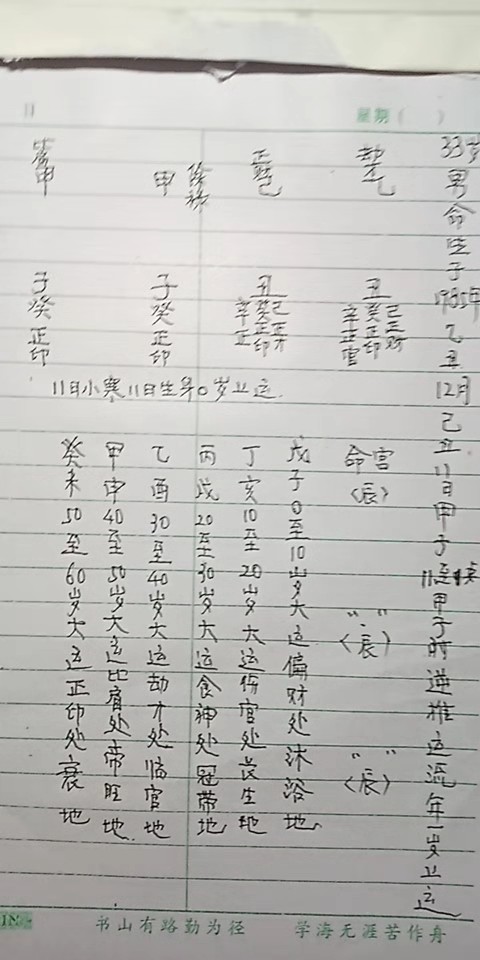 星期（ ）
33岁男命生于1985年乙丑12月己丑11日甲子11至1点甲子时逆推运流年一岁上运
劫才乙
正财己
伤禄
甲
甲
丑
己正财
癸正印
辛正官
丑
己正才
癸正印
辛正
子癸正印
子癸正印
11日小寒11日生第0岁上运
命宫〈辰〉
〃 〃〈辰〉
〃 〃〈辰〉
戊子0至10岁大运偏财处沐浴地
丁亥10至20岁大运伤官处长生地
丙戌20至30岁大运食神处冠带地
乙酉30至40岁大运劫才处临官地
甲申40至50岁大运比肩处帝旺地
癸未50至60岁大运正印处衰地
书山有路勤为径 学海无涯苦作舟